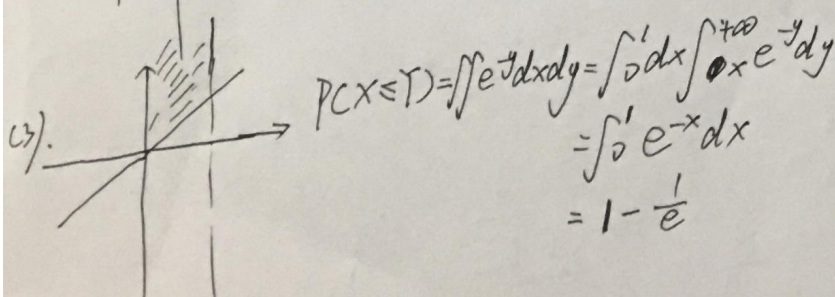 (3). P(X≤Y)=∬e^{-y}dxdy=∫_0^1dx∫_x^{+∞}e^{-y}dy
=∫_0^1 e^{-x}dx
=1-\frac{1}{e}